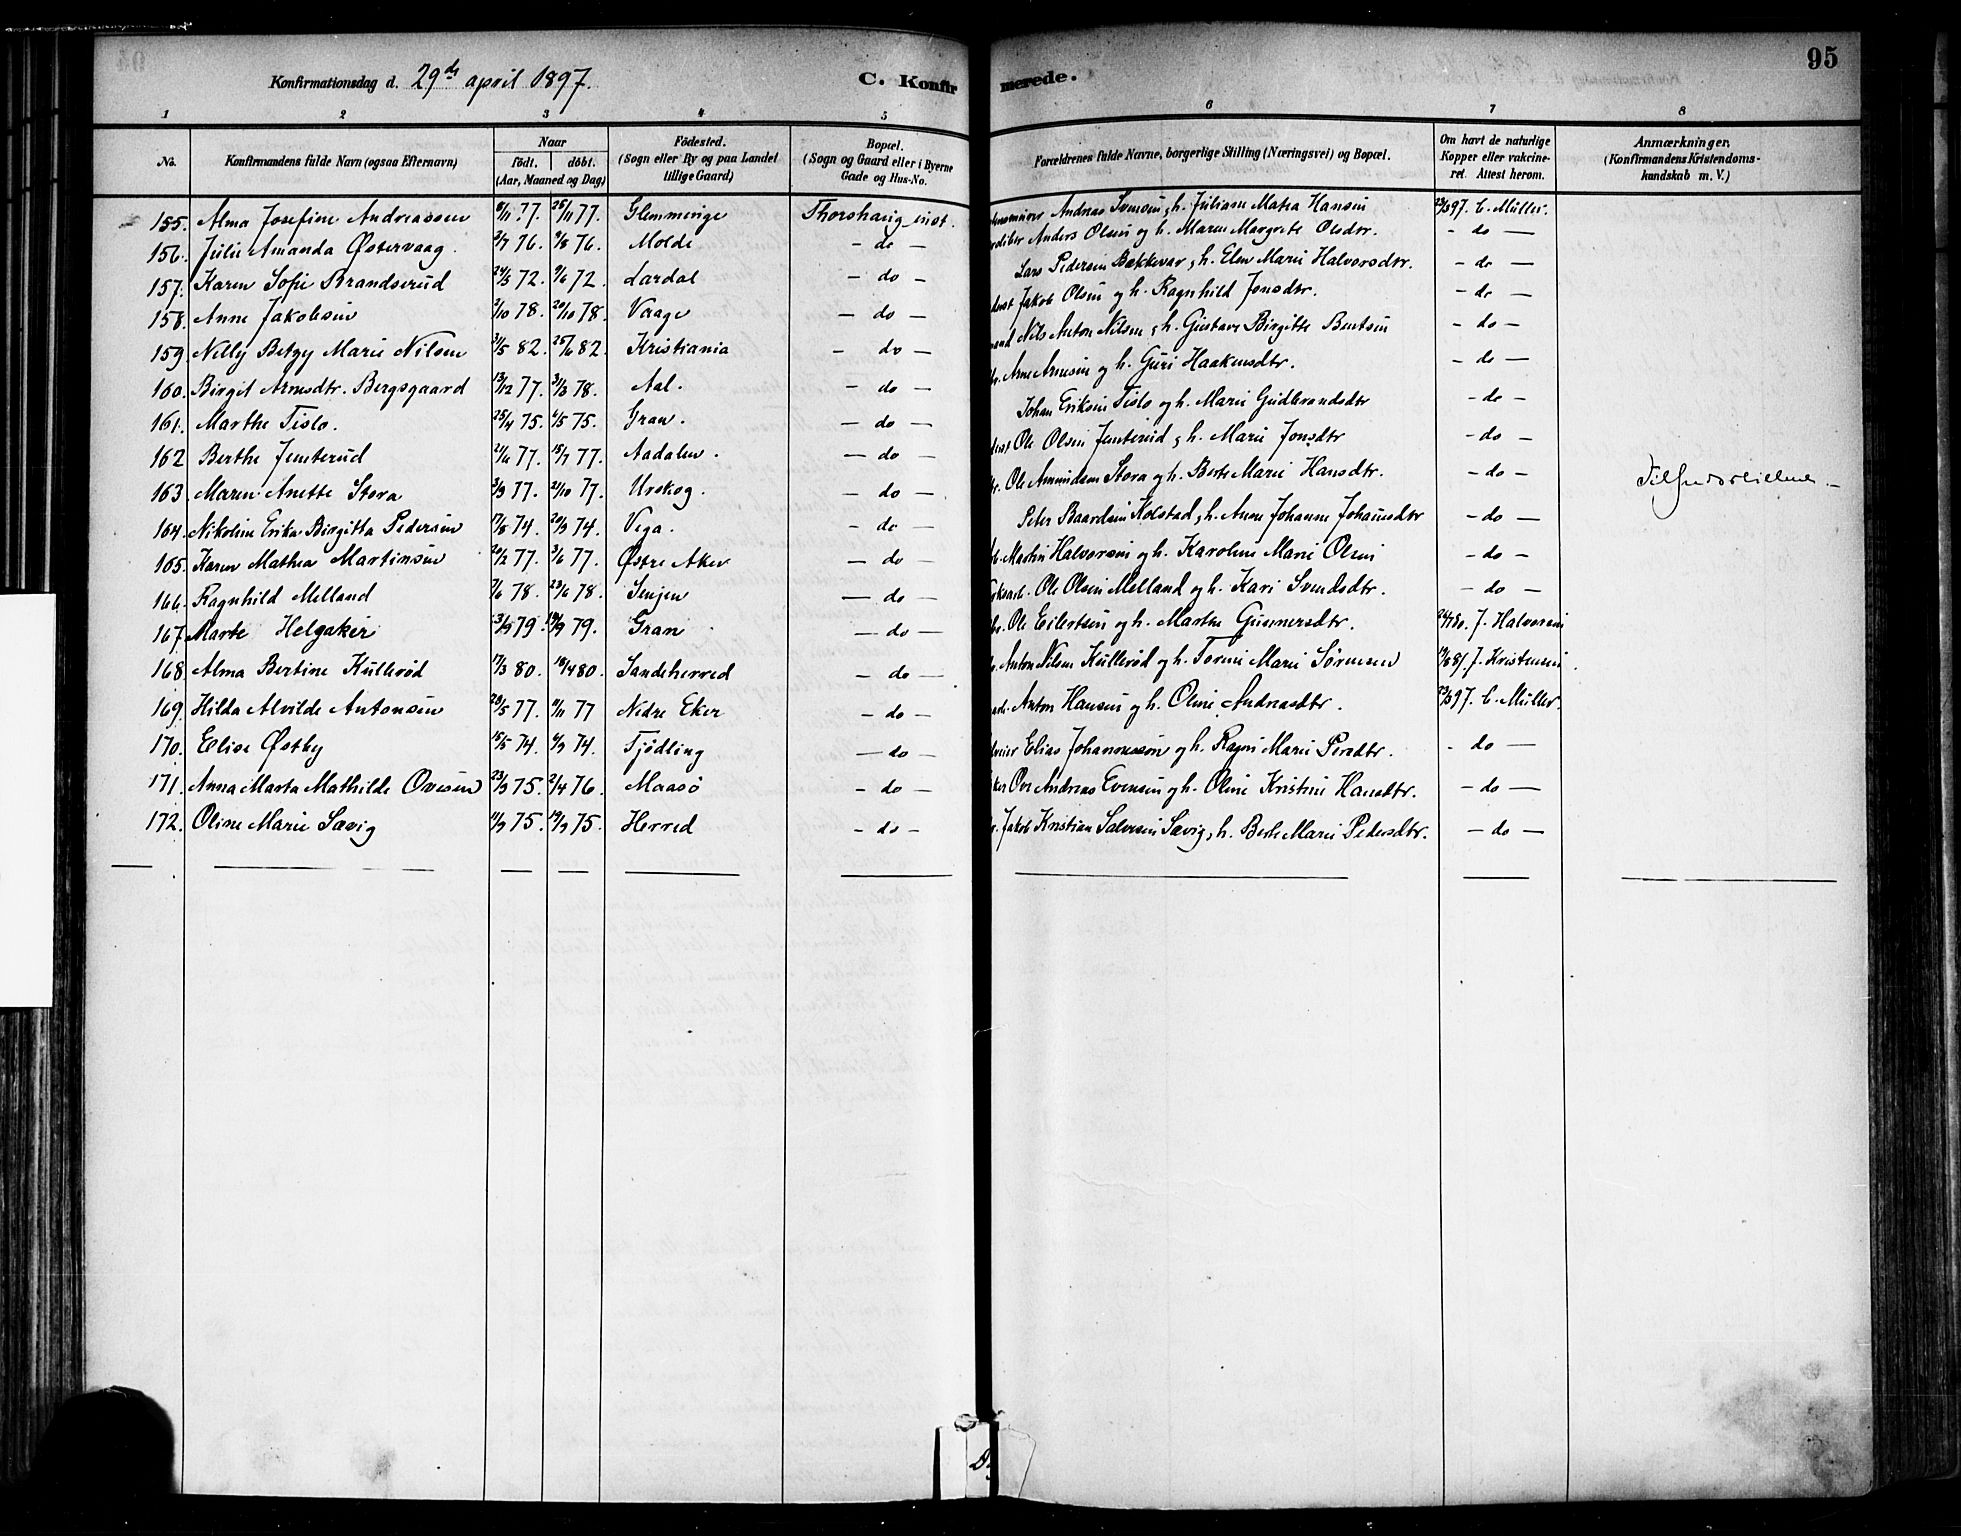 95
Konfirmationsdag d. 29de april 1897.
C. Konfirmerede.
1 2 3 4 5 6 7 8
No. Konfirmandens fulde Navn (ogsaa Efternavn) Naar födt. döbt. (Aar, Maaned og Dag) Födested. (Sogn eller By og paa Landet tillige Gaard) Bopæl. (Sogn og Gaard eller i Byerne Gade og Hus-No. Forældrenes fulde Navne, borgerlige Stilling (Næringsvei) og Bopæl. Om havt de naturlige Kopper eller vakcineret. Attest herom. Anmærkninger. (Konfirmandens Kristendomskundskab m. V.)
155. Alma Josefine Andreassen 8/11 77. 25/11 77. Glemminge Thorshaug inst. Andreas Svensen, h. Juliane Matea Hansen 23/3 97. C. Müller.
156. Julie Amanda Østervaag. 2/7 76. 9/8 76. Molde - do - Anders Olsen og h. Maren Margrete Olsdtr. - do -
157. Karen Sofie Brandserud 24/3 72. 9/6 72. Lardal - do - Lars Pedersen Bakkevar, h. Elen Marie Halvorsdtr. - do -
158. Anne Jakobsen 2/10 78. 20/10 78. Vaage - do - Jakob Olsen og h. Ragnhild Jonsdtr. - do -
159. Nelly Betzy Marie Nilsen 31/5 82. 25/6 82. Kristiania - do - Nils Anton Nilsen, h. Gustava Birgitte Bentsen - do -
160. Birgit Arnesdtr. Bergsgaard 13/12 77. 3/3 78. Aal. - do - Arne Arnesen og h. Guri Haakensdtr. - do -
161. Marthe Tislo. 25/4 75. 4/5 75. Gran. - do - Johan Eriksen Tislo og h. Marie Gudbrandsdtr - do -
162 Berthe Jenterud 21/6 77. 15/7 77. Aadalen. - do - Ole Olsen Jenterud, h. Marie Jonsdtr - do -
163. Maren Anette Stora 3/9 77. 21/10 77. Urskog. - do - Ole Amundsen Stora og h. Berte Marie Hansdtr. - do -
164. Nikoline Erika Birgitta Pedersen 17/8 74. 20/9 74. Vega. - do - Peter Baardsen Kolstad, h. Anne Johanne Johansdtr - do -
165. Karen Mathea Martinsen 20/2 77. 3/6 77. Østre Aker - do - Martin Halvorsen og h. Karoline Marie Olsen - do -
166. Ragnhild Melland 7/6 78. 23/6 78. Senjen - do - Ole Olsen Melland og h. Kari Svendsdtr. - do -
167. Marte Helgaker 79. 79. Gran - do - Ole Eilertsen og h. Marthe Gunnersdtr. 24/7 80. J. Halvorsen
168. Alma Bertine Kullerød 17/3 80. 18/4 80. Sandeherred - do - Anton Nilsen Kullerød og h. Torine Marie Sørensen 19/8 81. J. Kristensen.
169. Hilda Alvilde Antonsen 28/5 77. 11/11 77 Nedre Eker - do - Anton Hansen og h. Oline Andreasdtr. 23/3 97. C. Müller.
170. Elise Østby 15/5 74. 6/9 74. Tjödling - do - Elias Johannesøn og h. Ragni Marie Persdtr. - do -
171. Anna Marta Mathilde Ovesen 23/9 75. 2/4 76. Maasö - do - Ove Andreas Evensen og h. Oline Kristine Hansdtr. - do -
172. Oline Marie Sævig 11/9 75. 19/9 75. Herred - do - Jakob Kristian Salvesen Sævig, h. Berte Marie Pedersdtr. - do -